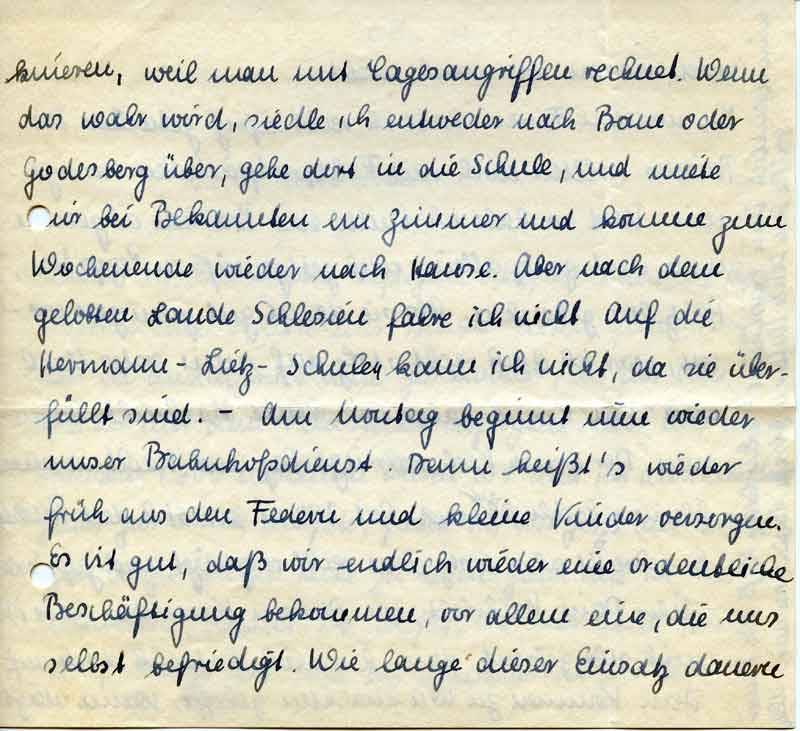 kuieren, weil man mit Tagesangriffen rechnet. Wenn
das wahr wird, siedle ich entweder nach Bonn oder
Godesberg über, gehe dort in die Schule, und miete
mir bei Bekannten ein Zimmer und komme zum
Wochenende wieder nach Hause. Aber nach dem
gelobten Lande Schlesien fahre ich nicht. Auf die
Hermann-Lietz-Schulen kann ich nicht, da sie über-
füllt sind. - Am Montag beginnt nun wieder
unser Bahnhofsdienst. Dann heißt's wieder
früh aus den Federn und kleine Kinder versorgen.
Es ist gut, daß wir endlich wieder eine ordentliche
Beschäftigung bekommen, vor allem eine, die uns
selbst befriedigt. Wie lange dieser Einsatz dauern